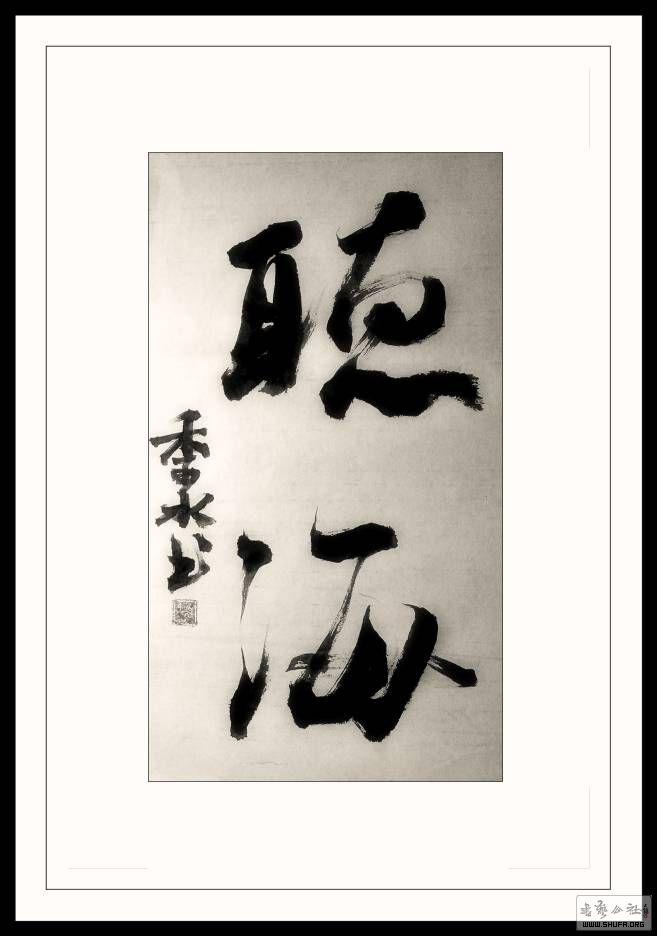 聽海
香水书
书艺公社
WWW.SHUFA.ORG